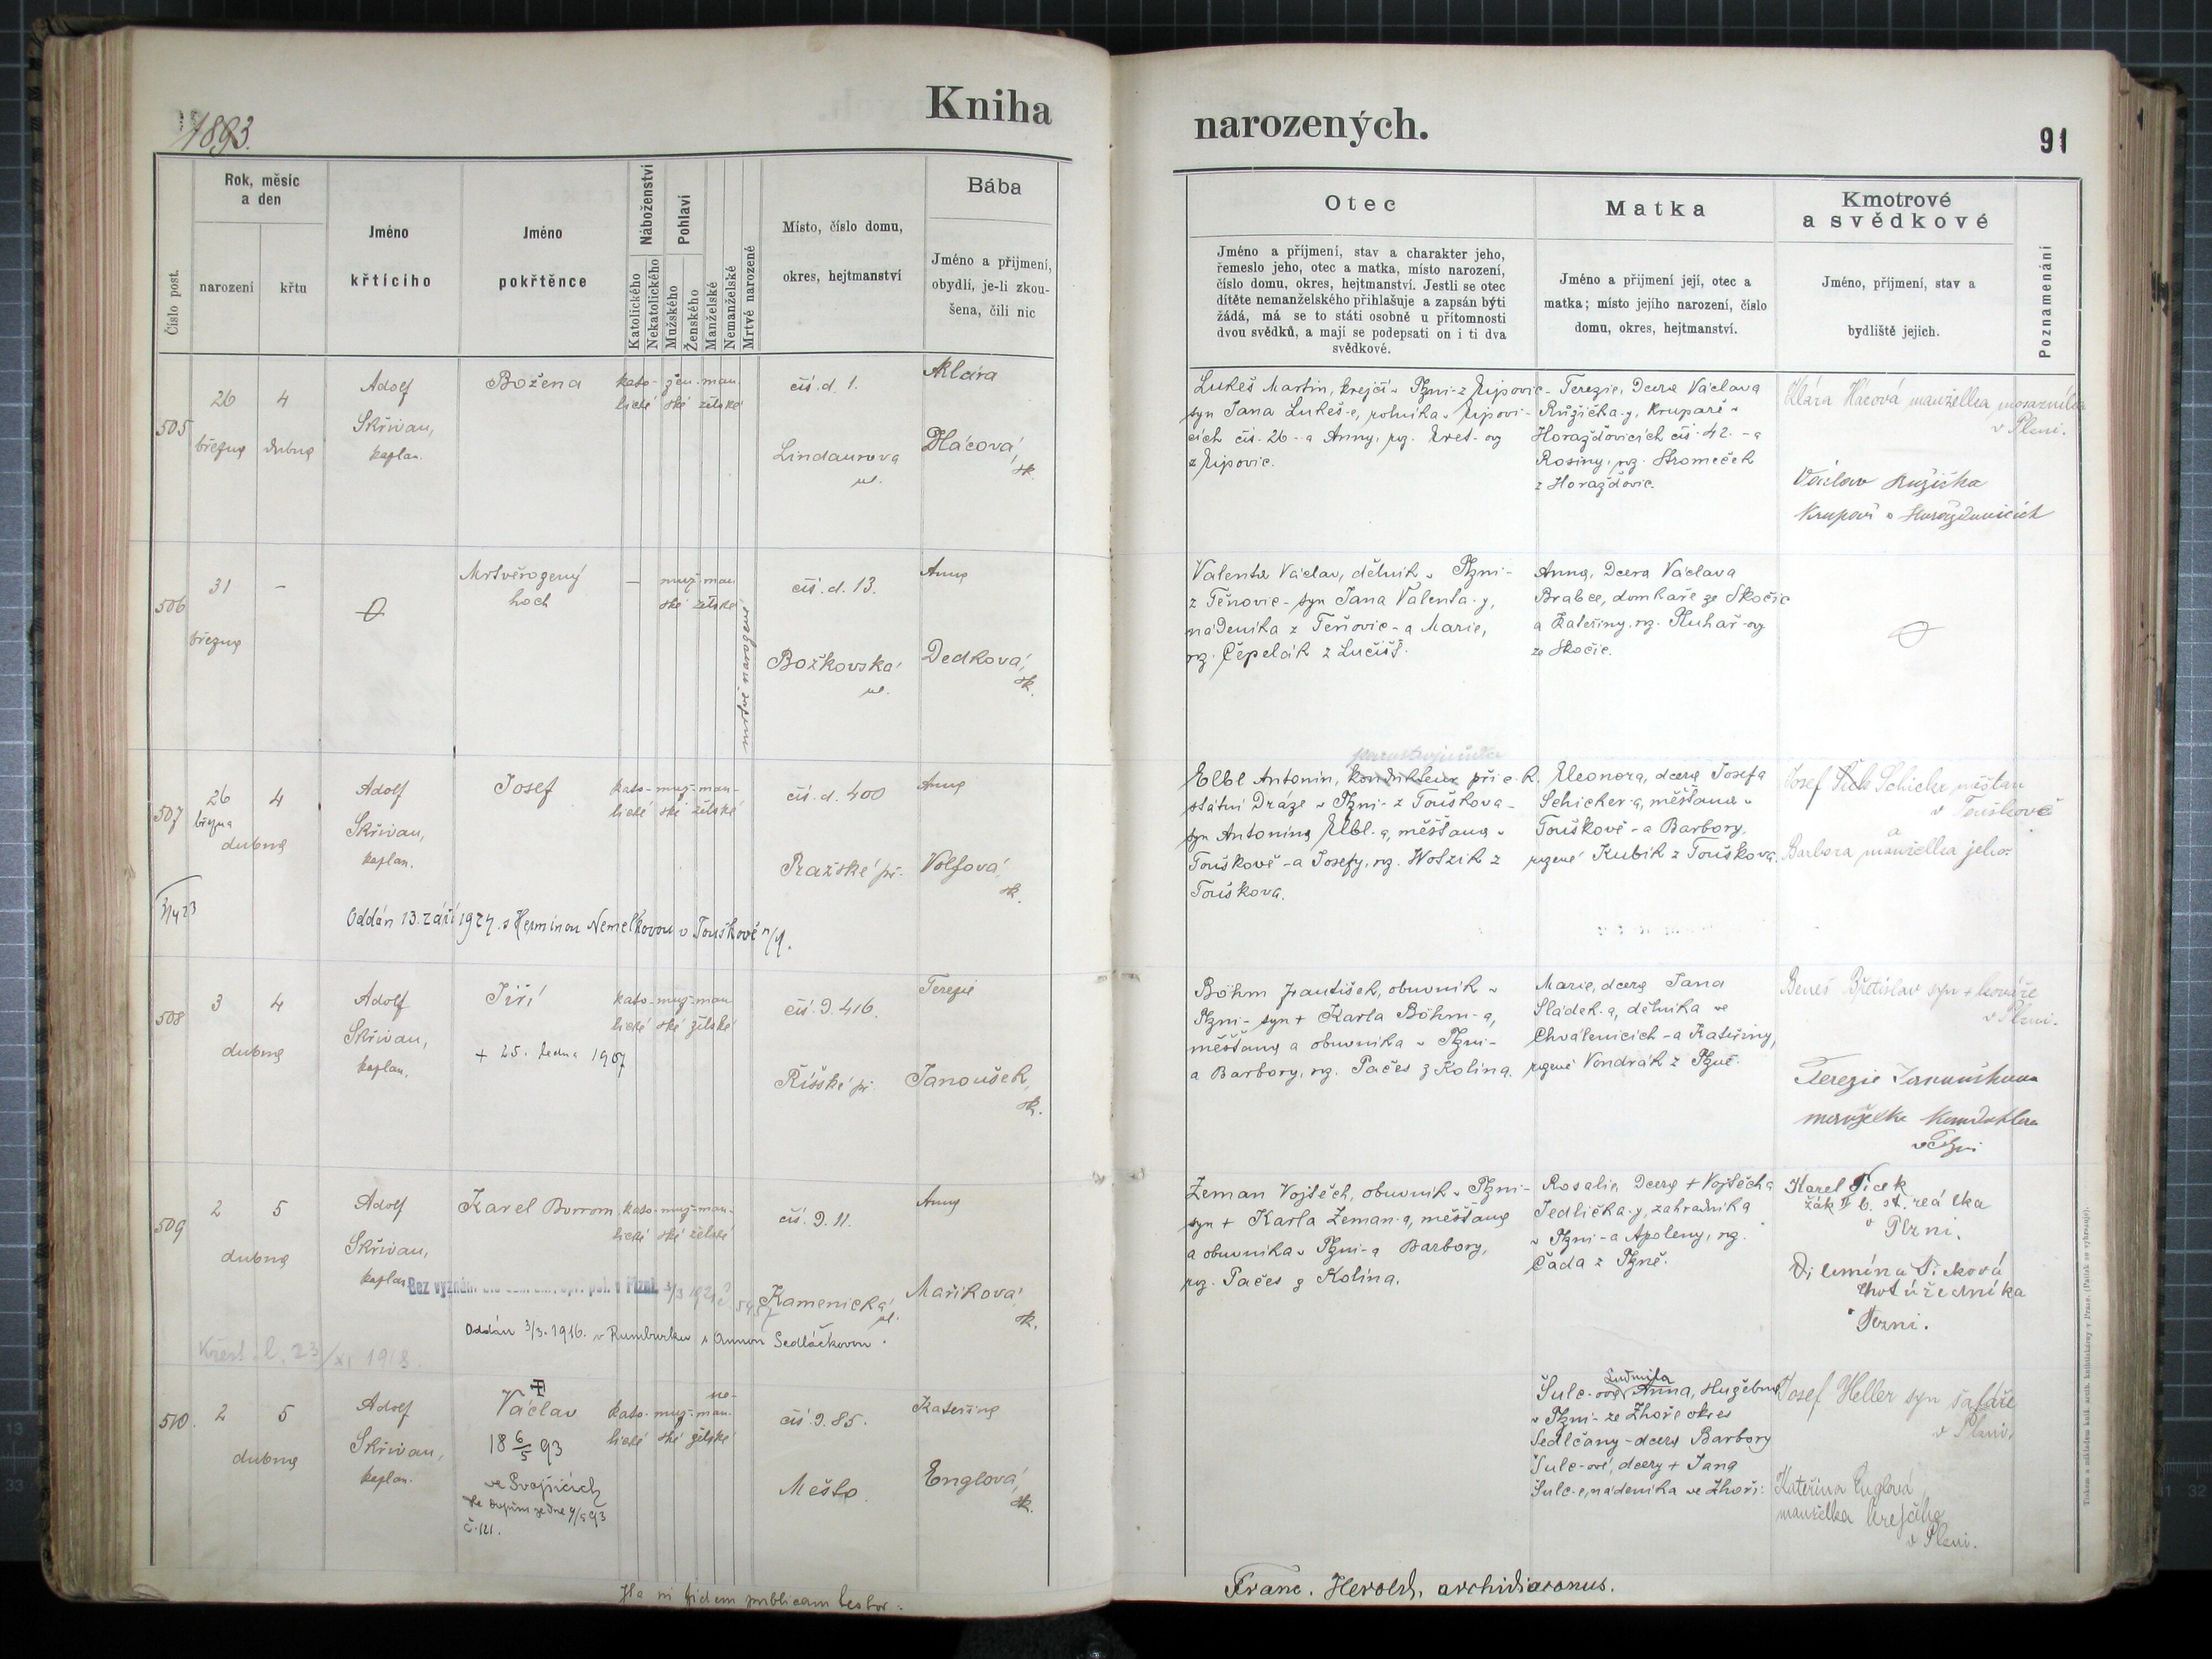 Kniha
1893.
Číslo post.
Rok, měsíc
a den
narození
křtu
Jméno
křtícího
Jméno
pokřtěnce
Náboženství
Katolického
Nekatolického
Pohlaví
Mužského
Ženského
Manželské
Nemanželské
Mrtvě narozené
Místo, číslo domu,
okres, hejtmanství
Bába
Jméno a přijmení,
obydlí, je-li zkou-
šena, čili nic
505
26
března
4
dubna
Adolf
Skřivan,
kaplan.
Božena
kato- žen- man-
lické ské želské
čís. d. 1.
Lindaurova
ul.
Klára
Hácová,
zk.
506
31
března
-
Mrtvěrozený
hoch
muž- man-
ské želské
mrtvě narozené
čís. d. 13.
Božkovská
ul.
Anna
Dedková,
zk.
507
26
března
4
dubna
Adolf
Skřivan,
kaplan.
Josef
kato- muž- man-
lické ské želské
čís. d. 400
Pražské př.
Anna
Volfová,
zk.
Oddán 13. září 1924. s Herminou Nemelkovou v Touškově n/M.
508
3
4
dubna
Adolf
Skřivan,
kaplan.
Jiří
+ 25. ledna 1907
kato- muž- man-
lické ské želské
čís. d. 416.
Říšské př.
Terezie
Janoušek,
zk.
509
2
5
dubna
Adolf
Skřivan,
kaplan.
Karel Borrom.
kato- muž- man-
lické ské želské
čís. d. 11.
Kamenická
ul.
Anna
Maříková,
zk.
Bez vyznání v Plzni
Oddán 3/3. 1916. v Rumburku s Annou Sedláčkovou.
Křest. l. 23/XI 1918.
510.
2
5
dubna
Adolf
Skřivan,
kaplan.
Václav
18 6/5 93
ve Svojšicích
č. 121.
ne-
kato- muž- man-
lické ské želské
čís. d. 85.
Město.
Kateřina
Englová,
zk.
Ita in fidem publicam testor:
narozených.
91
Otec
Jméno a příjmení, stav a charakter jeho,
řemeslo jeho, otec a matka, místo narození,
číslo domu, okres, hejtmanství. Jestli se otec
dítěte nemanželského přihlašuje a zapsán býti
žádá, má se to státi osobně u přítomnosti
dvou svědků, a mají se podepsati on i ti dva
svědkové.
Matka
Jméno a přijmení její, otec a
matka; místo jejího narození, číslo
domu, okres, hejtmanství.
Kmotrové
a svědkové
Jméno, příjmení, stav a
bydliště jejich.
Poznamenání
Lukeš Martin, krejčí v Plzni- z Ejpovic-
syn Jana Lukeš-e, rolníka v Ejpovi-
cích čís. 26 - a Anny, roz. Kres-ov
z Ejpovic.
Terezie, dcera Václava
Růžička-y, krupaře v
Horažďovicích čís. 42. - a
Rosiny, roz. Stromeček
z Horažďovic.
Klára Hácová manželka
v Plzni.
Václav Růžička
krupař v Horažďovicích
Valenta Václav, dělník v Plzni-
z Těnovic- syn Jana Valenta-y,
nádeníka z Těnovic- a Marie,
roz. Čepelák z Lučišť.
Anna, dcera Václava
Brabce, domkaře ze Skočic
a Kateřiny, roz. Pluhař-ov
ze Skočic.
Elbl Antonín, kondukteur při c. k.
státní dráze v Plzni- z Touškova-
syn Antonína Elbl-a, měšťana v
Touškově - a Josefy, roz. Wotzik z
Touškova.
Eleonora, dcera Josefa
Schicker-a, měšťana v
Touškově - a Barbory,
rozené Kubík z Touškova.
Josef Schicker měšťan
v Touškově
a
Barbora manželka jeho.
Böhm František, obuvník v
Plzni- syn + Karla Böhm-a,
měšťana a obuvníka v Plzni-
a Barbory, roz. Pačes z Kolína.
Marie, dcera Jana
Sládek-a, dělníka ve
Chválenicích - a Kateřiny,
rozené Vondrák z Plzně.
Beneš Břetislav syn + kováře
v Plzni.
Terezie Janoušková
manželka kondukléra
v Plzni
Zeman Vojtěch, obuvník v Plzni-
syn + Karla Zeman-a, měšťana
a obuvníka v Plzni- a Barbory,
roz. Pačes z Kolína.
Rosalie, dcera + Vojtěcha
Jedlička-y, zahradníka
v Plzni- a Apoleny, roz.
Čada z Plzně.
Karel Ticek
žák II b. st. reálka
v Plzni.
Vilemína Ticková
choť úředníka
Plzni.
Ludmila
Šulc-ová Anna, služebná
v Plzni- ze Zhoře okres
Sedlčany- dcera Barbory
Šulc-ové, dcery + Jana
Šulc-e, nádeníka ve Zhoři.
Josef Heller syn šafáře
v Plzni.
Kateřina Englová
manželka krejčího
v Plzni.
Franc. Herold, archidiaconus.